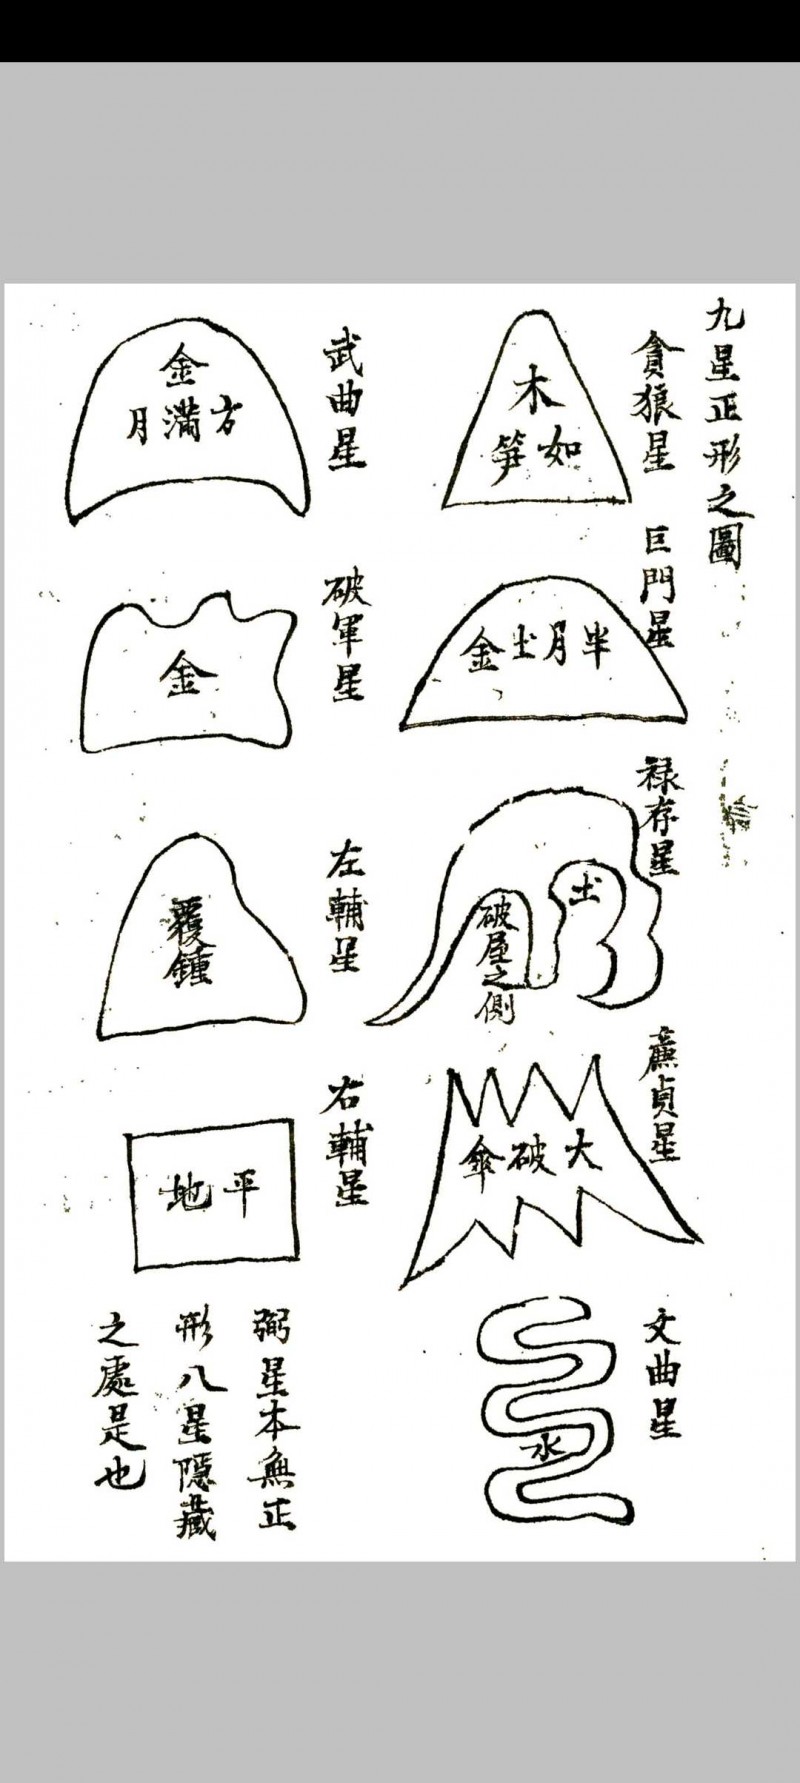 九星正形之圖
貪狼星
木
如笋
巨門星
半月土金
祿存星
土
破屋之側
廉貞星
大破傘
文曲星
水
武曲星
金
方滿月
破軍星
金
左輔星
覆鍾
右輔星
平地
弼星本無正
形八星隱藏
之處是也